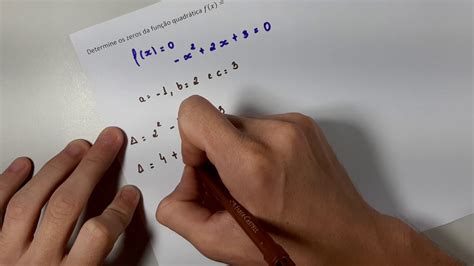 Determine os zeros da função quadrática f(x) =
f(x) = 0
-x² + 2x + 3 = 0
a = -1, b = 2 e c = 3
Δ = 2² - 3
Δ = 4 +